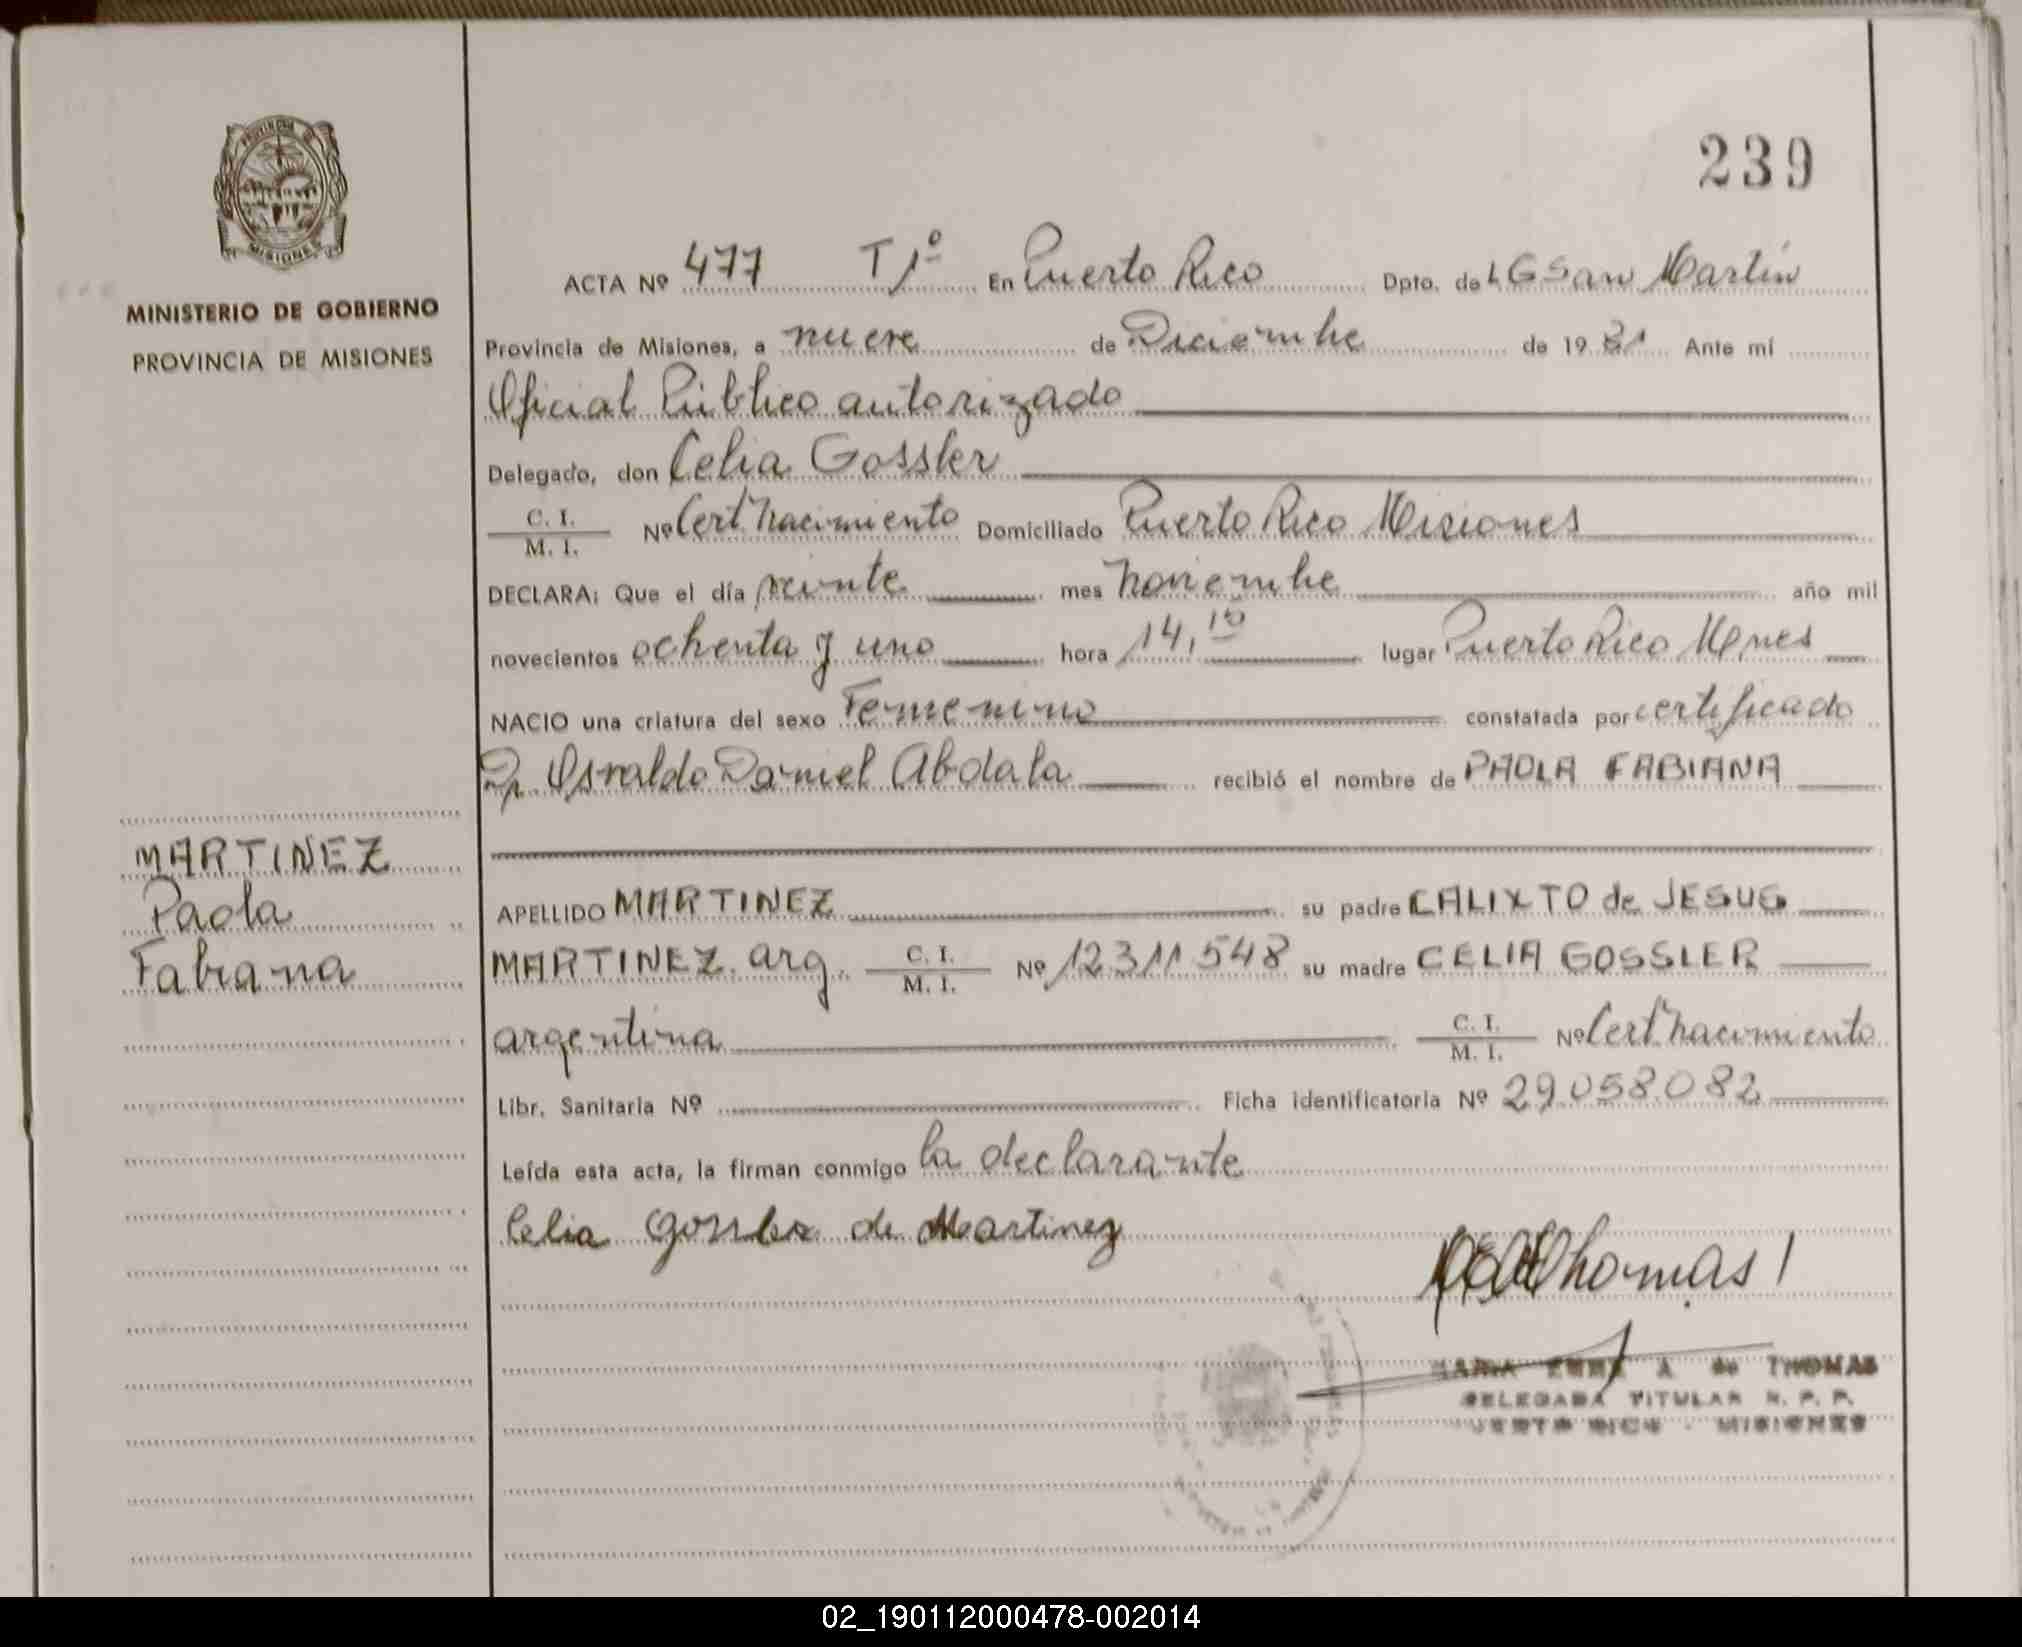 239
PROVINCIA DE
MISIONES
MINISTERIO DE GOBIERNO
PROVINCIA DE MISIONES
MARTINEZ
Paola
Fabiana
ACTA Nº 477 T 1º En Puerto Rico Dpto. de LG San Martín
Provincia de Misiones, a nueve de Diciembre de 1981 Ante mí
Oficial Público autorizado
Delegado, don Celia Gossler
C. I.
M. I. Nº Cert. Nacimiento Domiciliado Puerto Rico Misiones
DECLARA: Que el día veinte mes Noviembre año mil
novecientos ochenta y uno hora 14,10 lugar Puerto Rico Mnes
NACIO una criatura del sexo Femenino constatada por certificado
Dr. Osvaldo Daniel Abdala recibió el nombre de PAOLA FABIANA
APELLIDO MARTINEZ su padre CALIXTO de JESUS
MARTINEZ. arg. C. I. M. I. Nº 12311548 su madre CELIA GOSSLER
argentina C. I. M. I. Nº Cert. Nacimiento
Libr. Sanitaria Nº Ficha identificatoria Nº 29.058.082
Leída esta acta, la firman conmigo la declarante
Celia Gossler de Martinez
Thomas
MARIA A de THOMAS
DELEGADA TITULAR R. P. P.
PUERTO RICO - MISIONES
02_190112000478-002014